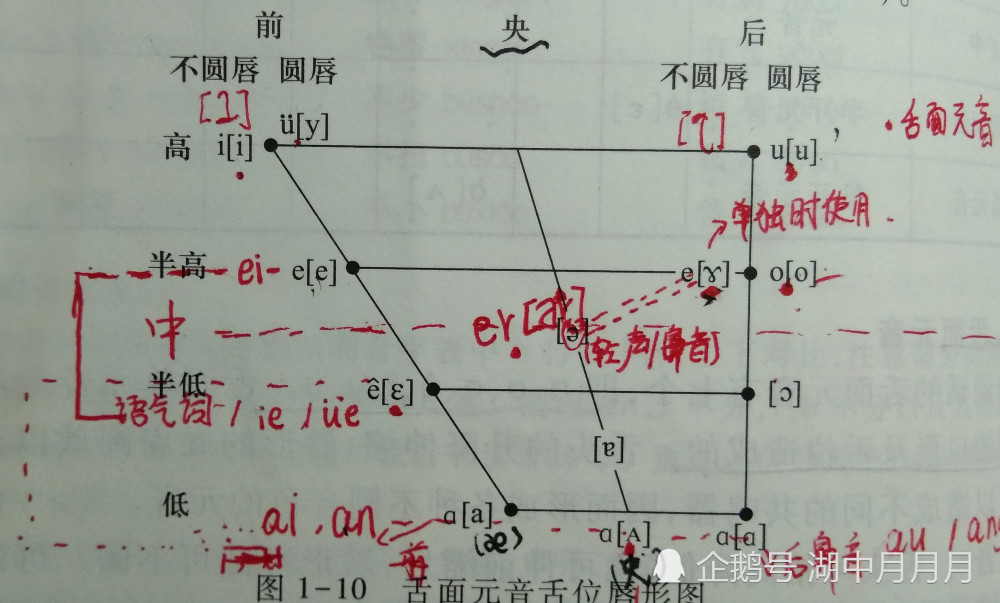 前 央 后
不圆唇 圆唇 不圆唇 圆唇
[ɿ] [ʅ]
高 i[i] ü[y] u[u] ·舌面元音
单独时使用.
半高 ei e[e] e[ɤ] o[o]
中 er[ɚ] [ə] (轻声/鼻音)
半低 ê[ɛ] [ɔ]
语气词 / ie / üe
[ɐ]
低 ai . an 前 ɑ[a] (æ) ɑ[ᴀ] 央 ɑ[ɑ] 后鼻音 au / ang
图 1-10 舌面元音舌位唇形图
企鹅号 湖中月月月